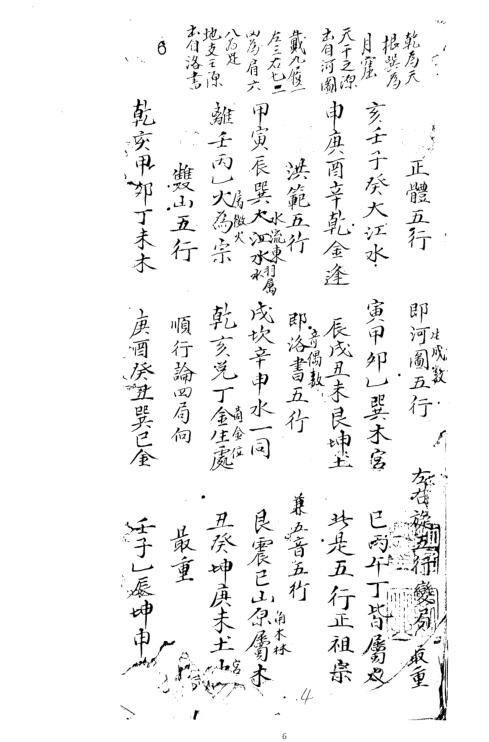 正體五行 即河圖五行 生成數 左右旋五行變局 最重
亥壬子癸大江水 寅甲卯乙巽木宮 巳丙午丁皆屬火
申庚酉辛乾金逢 辰戌丑未艮坤土 此是五行正祖宗
洪範五行 即洛書五行 奇偶數 兼五音五行
甲寅辰巽大江水 水流東 羽屬水 戌坎辛申水一同 艮震巳山原屬木 角木林
離壬丙乙火為宗 屬徵火 乾亥兌丁金生處 商金位 丑癸坤庚未土山 宮
雙山五行 順行論四局向 最重
乾亥甲卯丁未木 庚酉癸丑巽巳金 壬子乙辰坤申
乾為天
根巽為
月窟
天干之源
出自河圖
戴九履一
左三右七二
四為肩六
八為足
地支之源
出自洛書
6
4
6